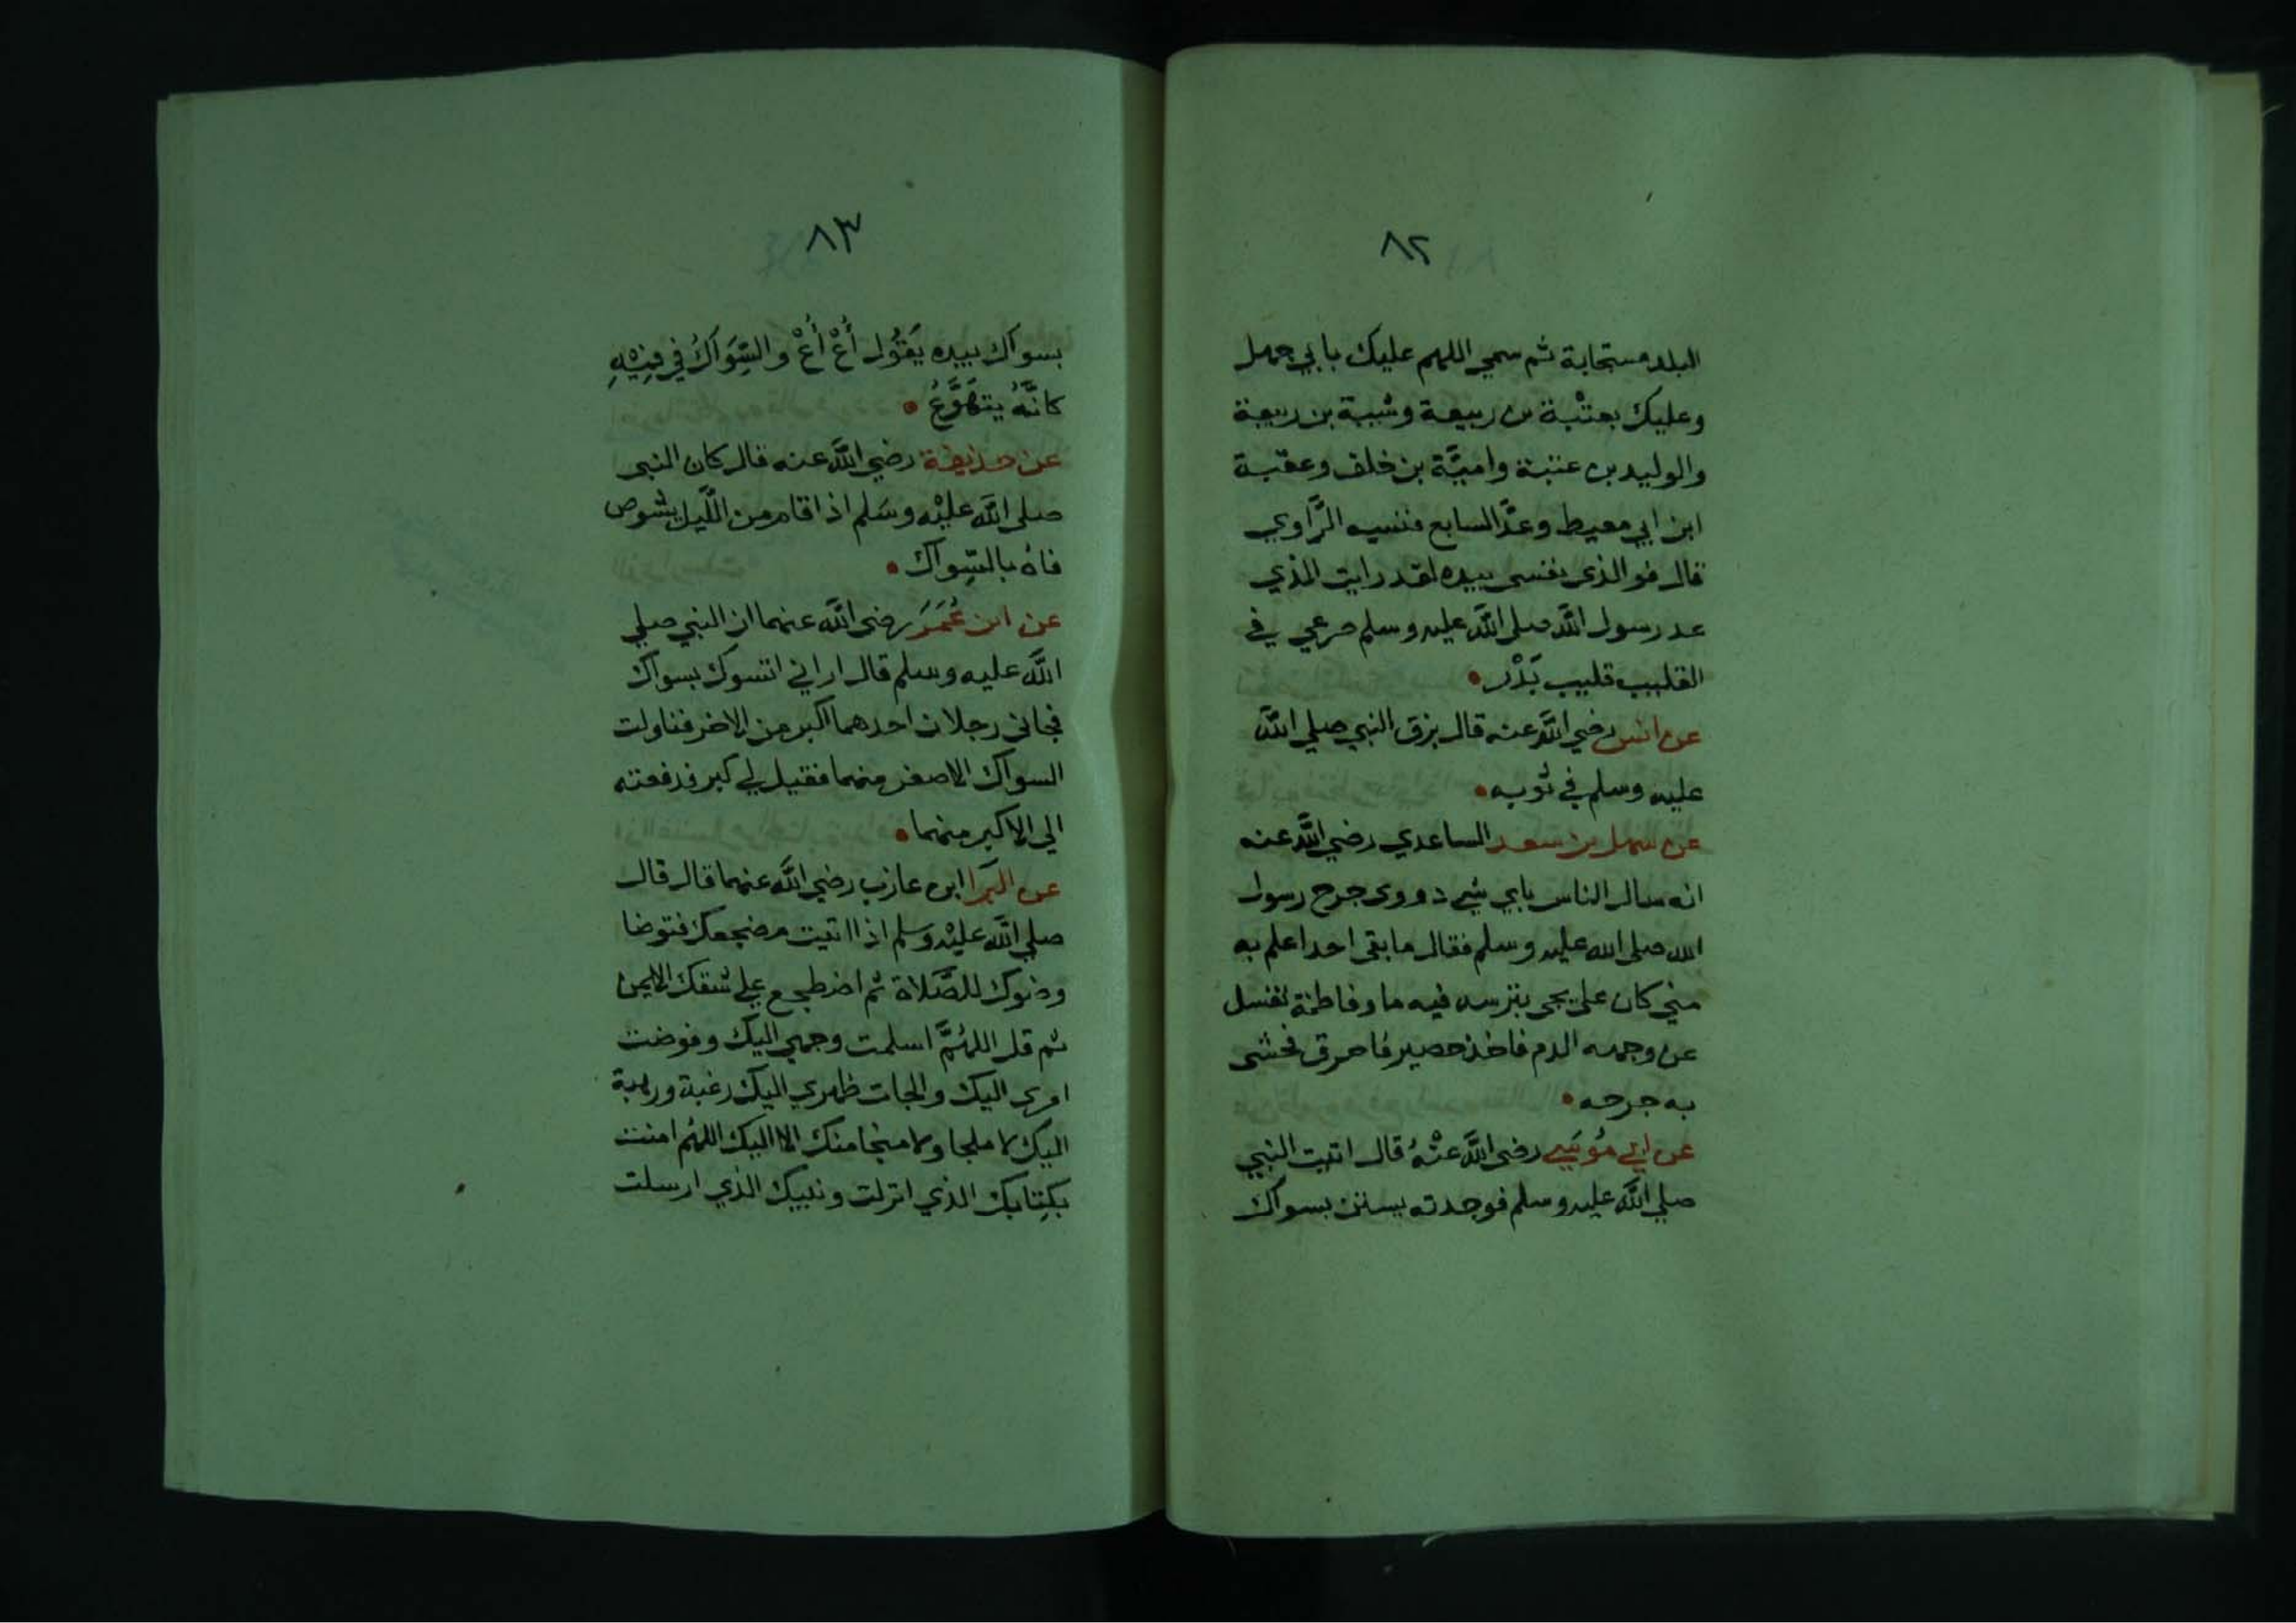 ٨٢
البلد مستجابة ثم سمي اللهم عليك بابي جهل
وعليك بعتْبة بن ربيعة وشيبة بن ربيعة
والوليد بن عتبة واميَّة بن خلف وعقبة
ابن ابي معيط وعدَّ السابع فنسيه الرَّاوي
قال فوالذي نفسي بيده لقد رايت الذي
عد رسول اللَّه صلى اللَّه عليه وسلم صرعي في
القليب قليب بَدْر
عن انس رضي اللَّه عنه قال بزق النبي صلي اللَّه
عليه وسلم في ثوبه
عن سهل بن سعد الساعدي رضي اللَّه عنه
انه سال الناس باي شي دووي جرح رسول
الله صلى الله عليه وسلم فقال ما بقي احد اعلم به
مني كان علي يجي بترسه فيه ما وفاطمة تغسل
عن وجهه الدم فاخذ حصير فاحرق فحشى
به جرحه
عن ابي مُوسَي رضي اللَّه عنْهُ قال اتيت النبي
صلي اللَّه عليه وسلم فوجدته يستن بسواك
٨٣
بسواك بيده يَقُول أُعْ أُعْ والسِّوَاكُ في فِيْهِ
كانَّهُ يتهَوَّعُ
عن حذيفة رضي اللَّه عنه قال كان النبي
صلي اللَّه عليْه وسَلم اذا قام من اللَّيل يشوص
فاهُ بالسِّواك
عن ابن عُمَرَ رضي اللَّه عنهما ان النبي صلي
اللَّه عليه وسلم قال اراني اتسوك بسواك
فجاني رجلان احدهما اكبر من الاخر فناولت
السواك الاصغر منهما فقيل لي كبر فدفعته
الي الاكبر منهما
عن البَرا ابن عازب رضي اللَّه عنهما قال قال
صلي اللَّه عليْه وَسلم اذا اتيت مضجعك فتوضا
وضوك للصَّلاة ثم اضطجع علي شقك الايمن
ثم قل اللهُمَّ اسلمت وجهي اليك وفوضت
امري اليك والجات ظهري اليك رغبة ورهبة
اليك لا ملجا ولا منجا منك الا اليك اللهُم امنت
بكِتابك الذي انزلت ونبيك الذي ارسلت